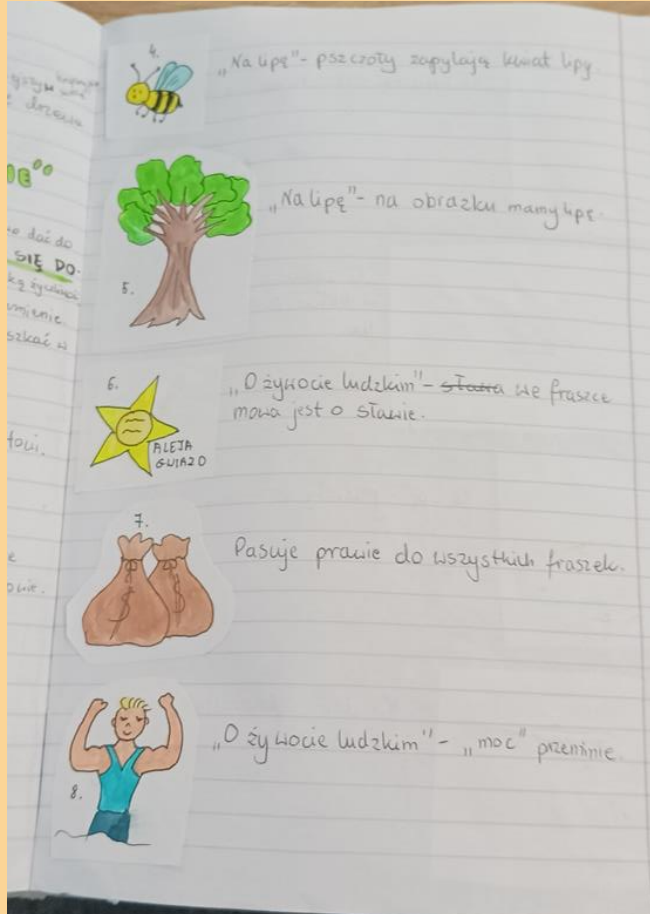 4.
„Na lipę" - pszczoły zapylają kwiat lipy.
drzewa
5.
„Na lipę" - na obrazku mamy lipę.
dać do
SIĘ DO-
6.
„O żywocie ludzkim" - sława we fraszce
mowa jest o sławie.
ALEJA
GWIAZD
7.
Pasuje prawie do wszystkich fraszek.
8.
„O żywocie ludzkim" - „moc" przeminie.